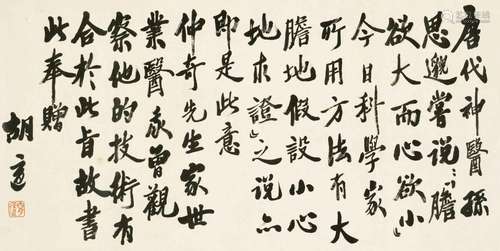 唐代神醫孫
思邈嘗說：「膽
欲大而心欲小」
今日科學家
所用方法有大
膽地假設小心
地求證」之說亦
即是此意
仲奇先生家世
業醫我曾觀
察他的技術有
合於此旨故書
此奉贈
胡適